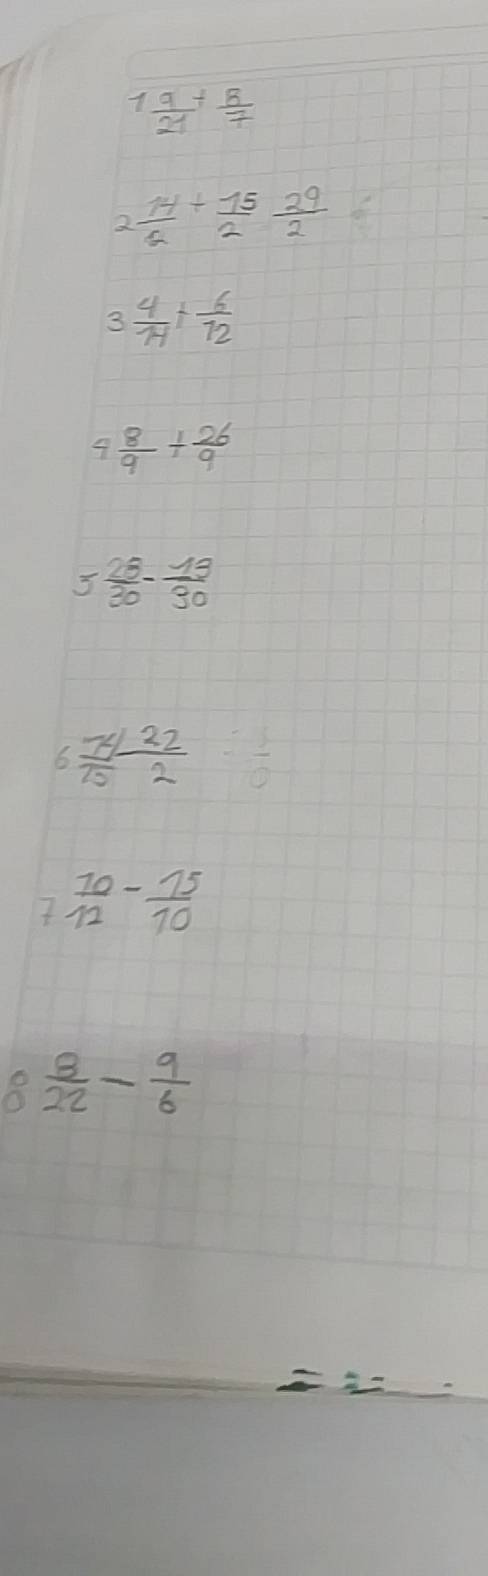 1 9/21 + 8/7
2 14/2 + 15/2 29/2
3 4/14 + 6/12
4 8/9 + 26/9
5 25/30 - 13/30
6 14/15 - 22/2
7 10/12 - 15/10
8 8/22 - 9/6